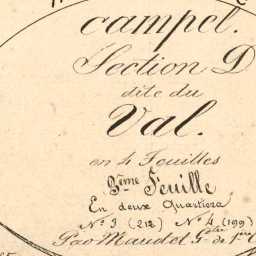 campel.
Section D
dite du
Val.
en 4 Feuilles
3ème Feuille
En deux Quartiers
N.º 3 (212) N.º 4 (199)
Par Maudet G.tre de 1